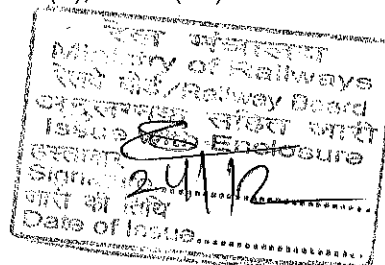 रेल मंत्रालय
Ministry of Railways
रेलवे बोर्ड/Railway Board
सहित जारी
Issue With Enclosure
हस्ताक्षर
Sign..........
24/12
जारी की तिथि
Date of Issue..........